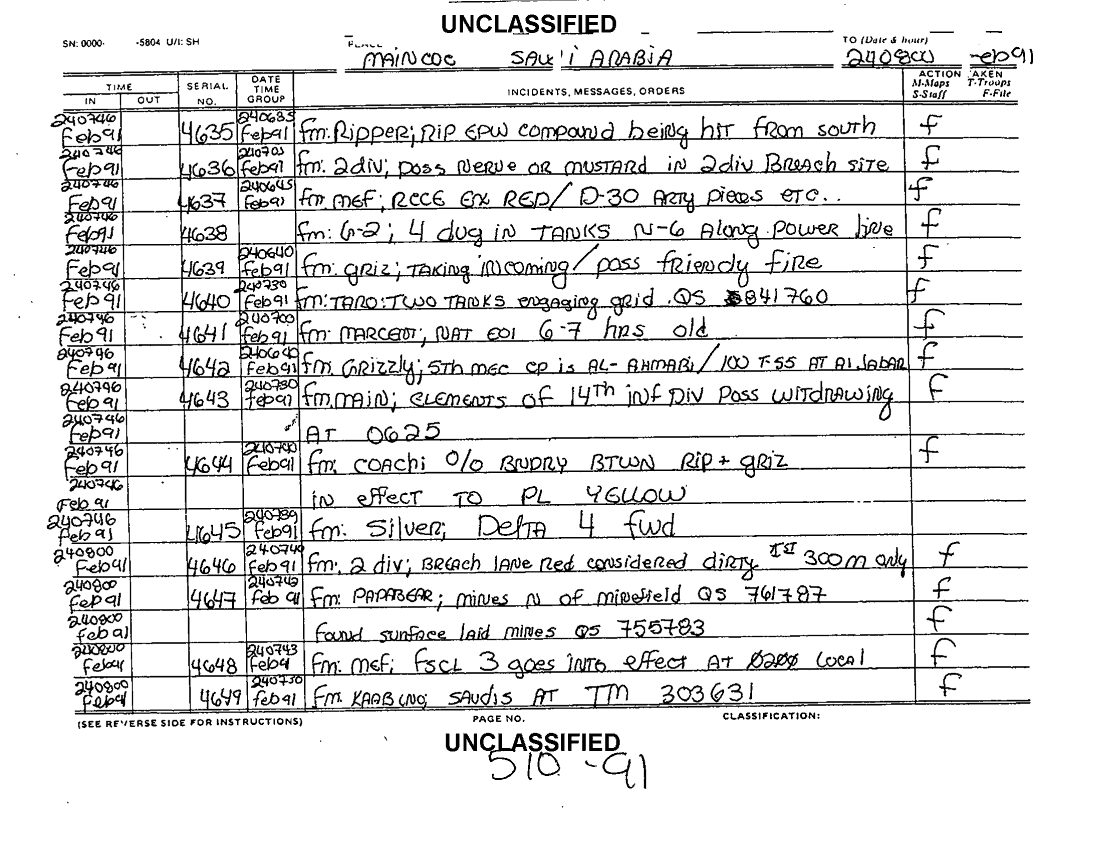 UNCLASSIFIED
SN: 0000- -5804 U/I: SH
TO (Date & hour)
MAIN COC SAU'I ARABIA 240800 -eb91
TIME SERIAL NO. DATE TIME GROUP INCIDENTS, MESSAGES, ORDERS ACTION TAKEN
IN OUT M-Maps T-Troops
S-Staff F-File
240746 Feb91 4635 240635 Feb91 fm: Ripper; RIP EPW compound being hit from south f
240746 Feb91 4636 240703 Feb91 fm: 2div; poss NERVE OR MUSTARD in 2div BREACH site f
240746 Feb91 4637 240645 Feb91 fm: MEF; RED/ D-30 ARTY pieces ETC.. f
240746 Feb91 4638 fm: G-2; 4 dug in TANKS N-6 Along POWER line f
240746 Feb91 4639 240640 Feb91 fm: griz; TAKING INCOMING/ poss friendly fire f
240746 Feb91 4640 240730 Feb91 fm: TARO: TWO TANKS engaging grid QS 841760 f
240746 Feb91 4641 240700 Feb91 fm: MARCENT; NAT EOI 6-7 hrs old f
240746 Feb91 4642 240640 Feb91 fm. GRizzly; 5Th MEC CP is AL-AHMARi/ 100 T-55 AT Al Jabar f
240746 Feb91 4643 240730 Feb91 fm. MAIN; ELEMENTS OF 14th inf DIV Poss WITDRAWING f
240746 Feb91 AT 0625
240746 Feb91 4644 240740 Feb91 fm: COACHi O/O BNDRY BTWN RIP + GRIZ f
240746 Feb91 IN effect TO PL YELLOW
240746 Feb91 4645 240739 Feb91 fm: Silver; DelTA 4 fwd
240800 Feb91 4646 240749 Feb91 fm: 2 div; BREACH lANE Red considered dirty 1ST 300m only f
240800 Feb91 4647 240742 Feb 91 fm: PAPABEAR; mines N of minefield QS 761787 f
240800 feb91 found surface laid mines QS 755783 f
240800 Feb91 4648 240743 Feb91 fm: MEF; FSCL 3 goes INTO effect AT LOCAL f
240800 Feb91 4649 240750 feb91 Fm. SAUDIS AT TM 303631 f
(SEE REVERSE SIDE FOR INSTRUCTIONS) PAGE NO. CLASSIFICATION:
UNCLASSIFIED
510-91